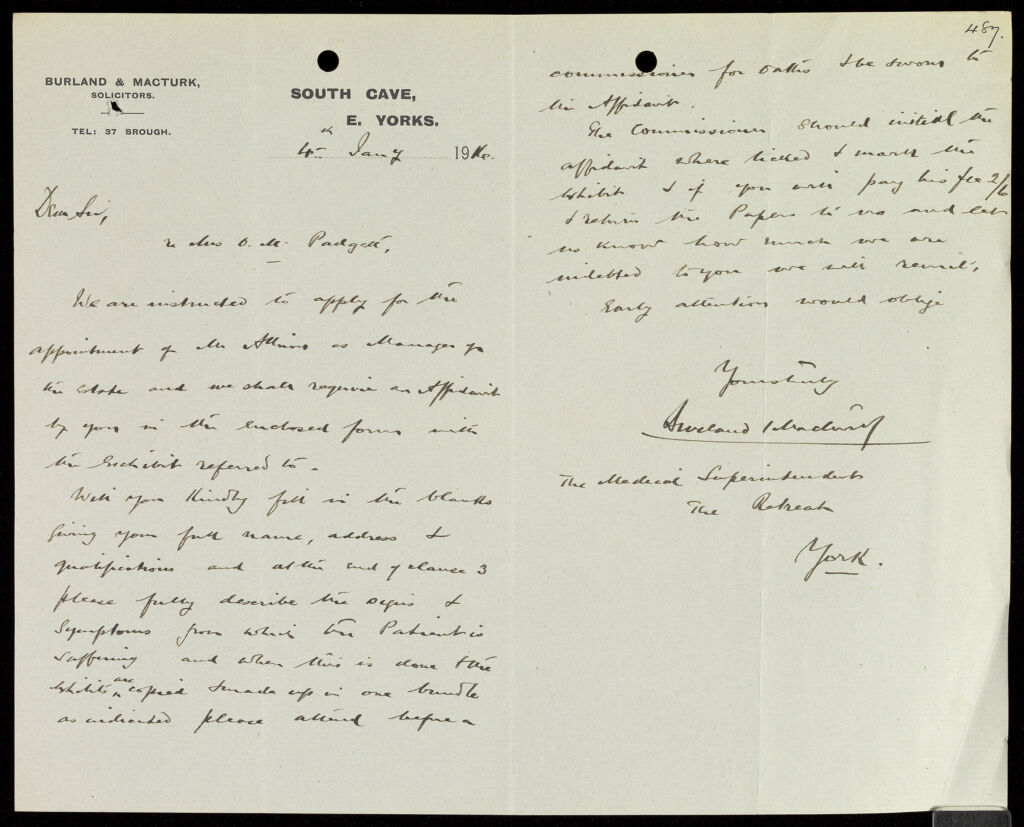 BURLAND & MACTURK,
SOLICITORS.
TEL: 37 BROUGH.
SOUTH CAVE,
E. YORKS.
4th Jany 1916.
Dear Sir,
re Mrs O. M. Padgett,
We are instructed to apply for the
appointment of Mr as Manager of
the estate and we shall require an Affidavit
by you in the enclosed form with
the Exhibit referred to.
Will you Kindly fill in the blanks
giving your full name, address &
qualifications and at the end of clause 3
please fully describe the signs &
Symptoms from which the Patient is
suffering and when this is done & the
Exhibits are copied & made up in one bundle
as indicated please attend before a
487.
commissioner for oaths & be sworn to
the Affidavit.
The Commissioner should initial the
affidavit where ticked & mark the
Exhibit & if you will pay his fee 2/6
& return the Papers to us and let
us know how much we are
indebted to you we will remit.
Early attention would oblige
Yours truly
Burland & Macturk
The Medical Superintendent
The Retreat
York.